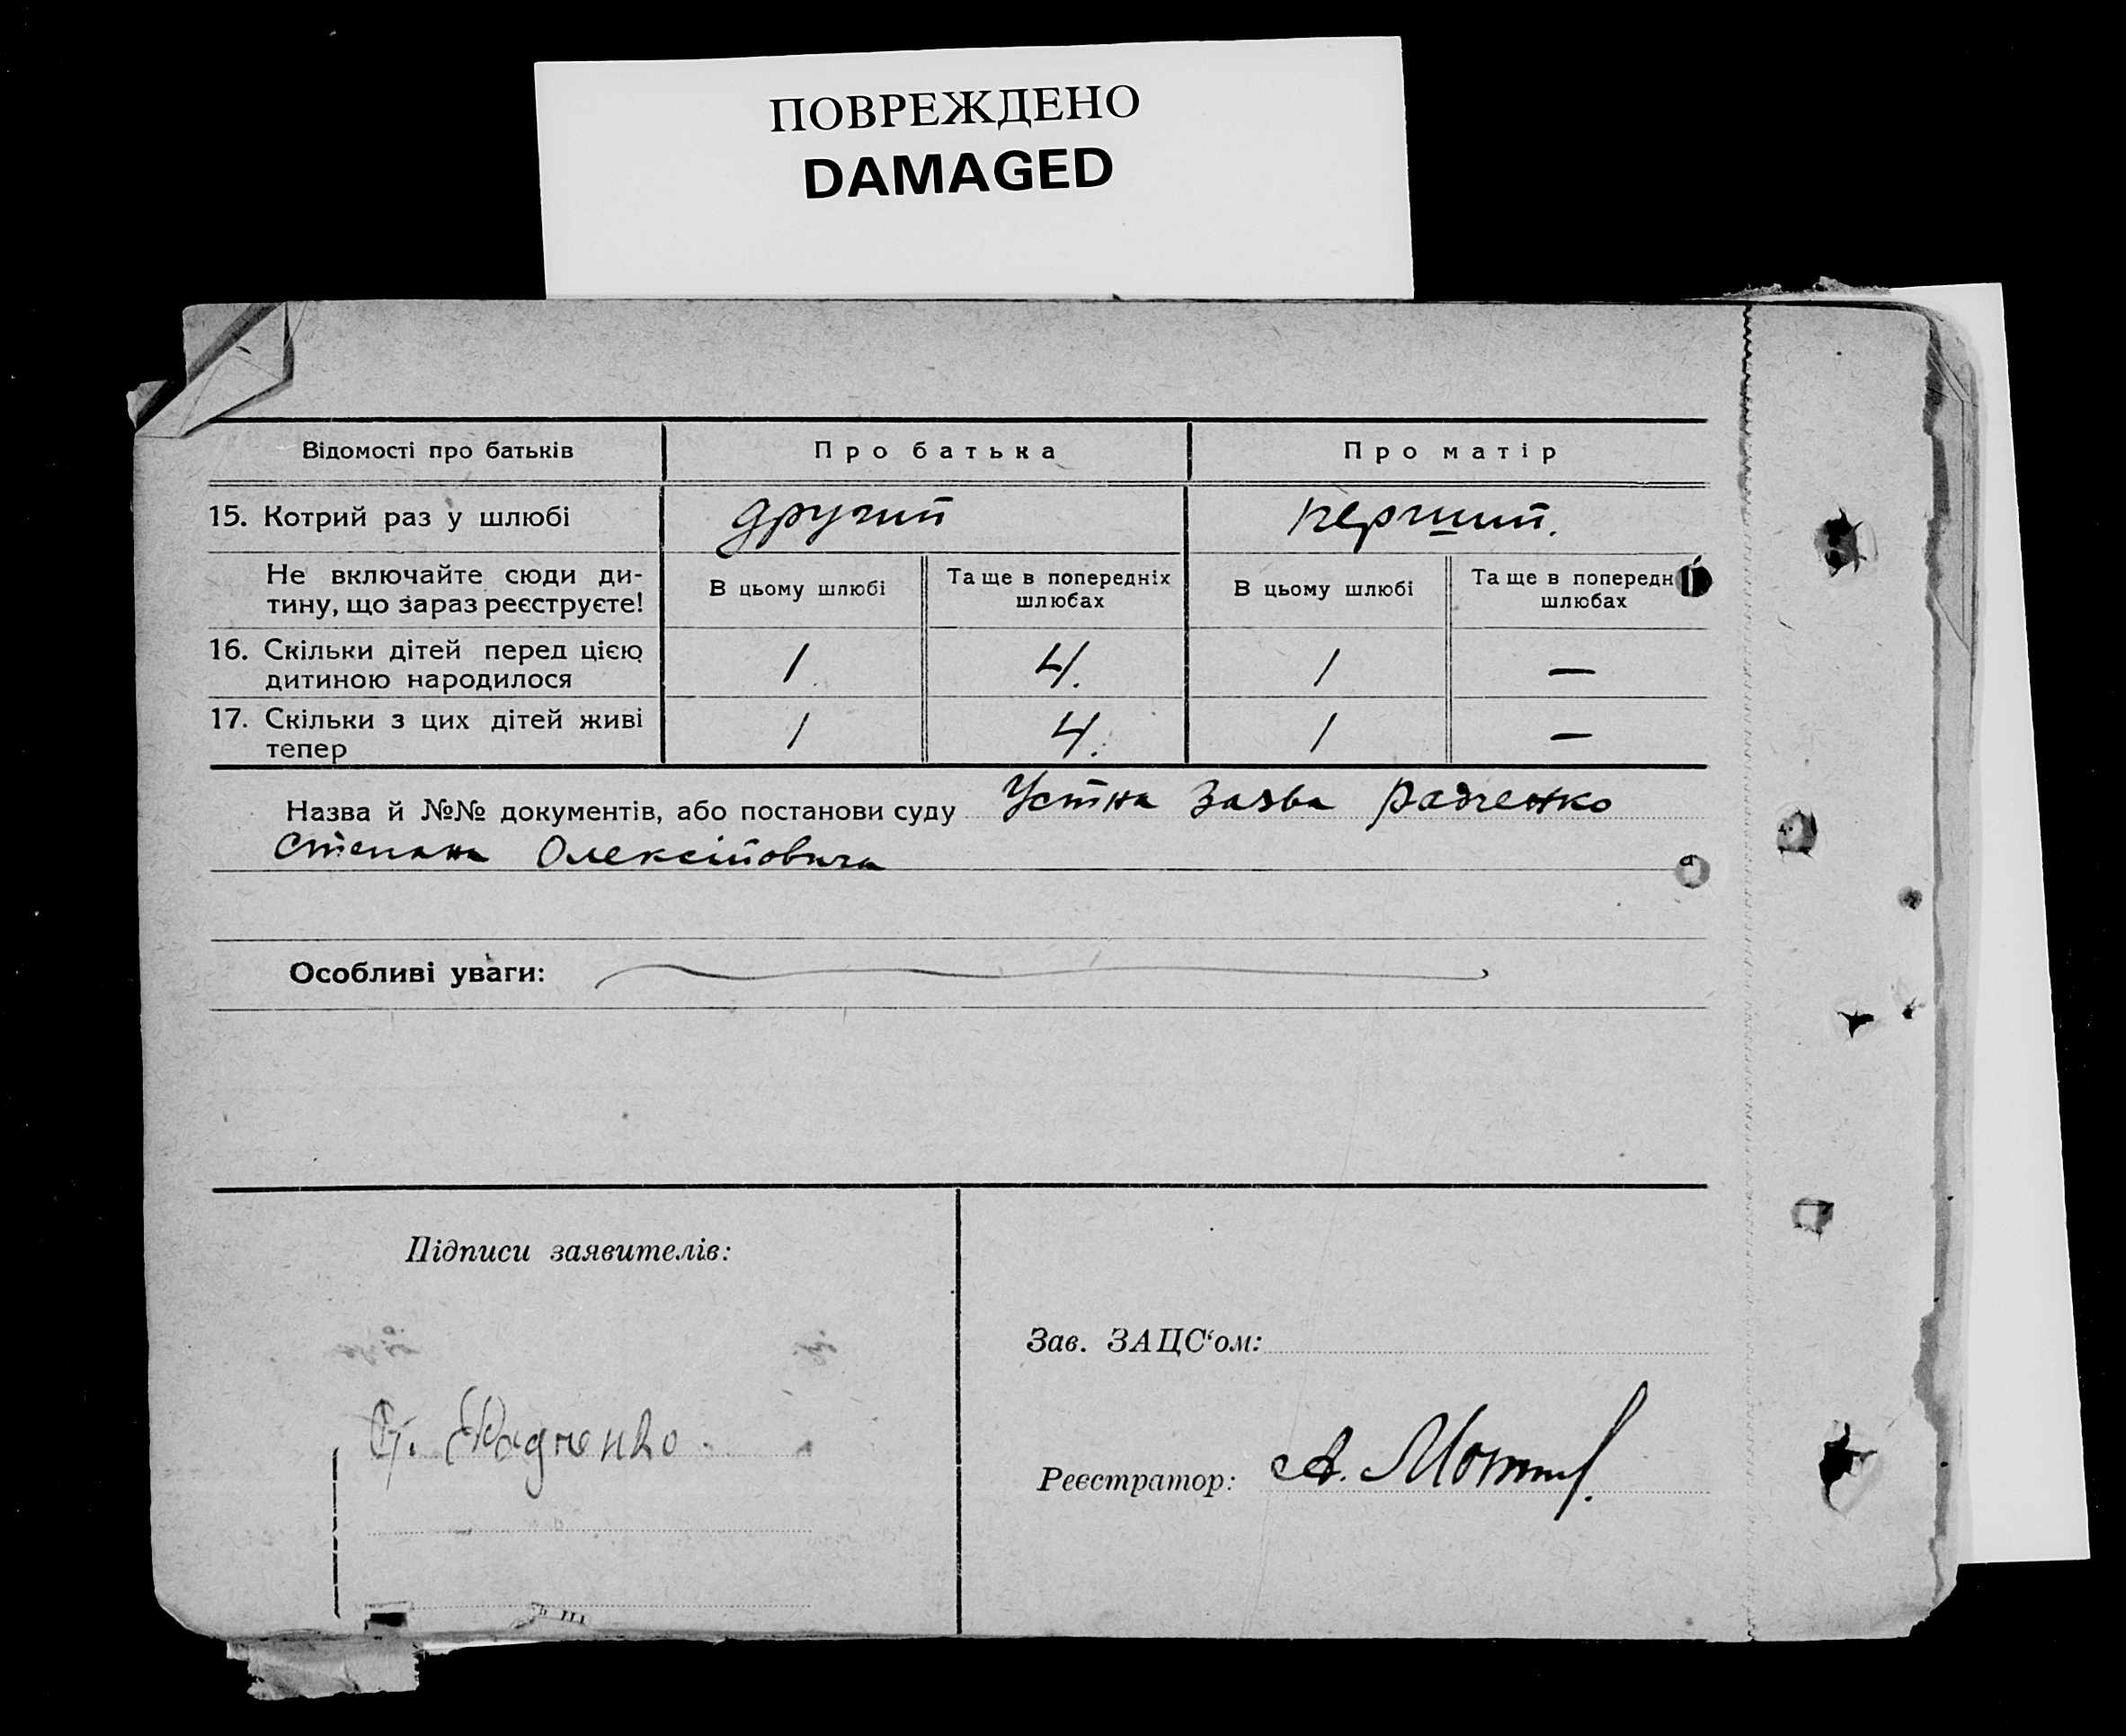 ПОВРЕЖДЕНО
DAMAGED
Відомості про батьків
Про батька
Про матір
15. Котрий раз у шлюбі
другий
перший.
Не включайте сюди ди-
тину, що зараз реєструєте!
В цьому шлюбі
Та ще в попередніх
шлюбах
В цьому шлюбі
Та ще в попередн
шлюбах
16. Скільки дітей перед цією
дитиною народилося
1
4.
1
—
17. Скільки з цих дітей живі
тепер
1
4.
1
—
Назва й №№ документів, або постанови суду Устна заява Радченко
Степана Олексійовича
Особливі уваги:
Підписи заявителів:
Ст. Радченко.
Зав. ЗАЦС‘ом:
Реєстратор: А.